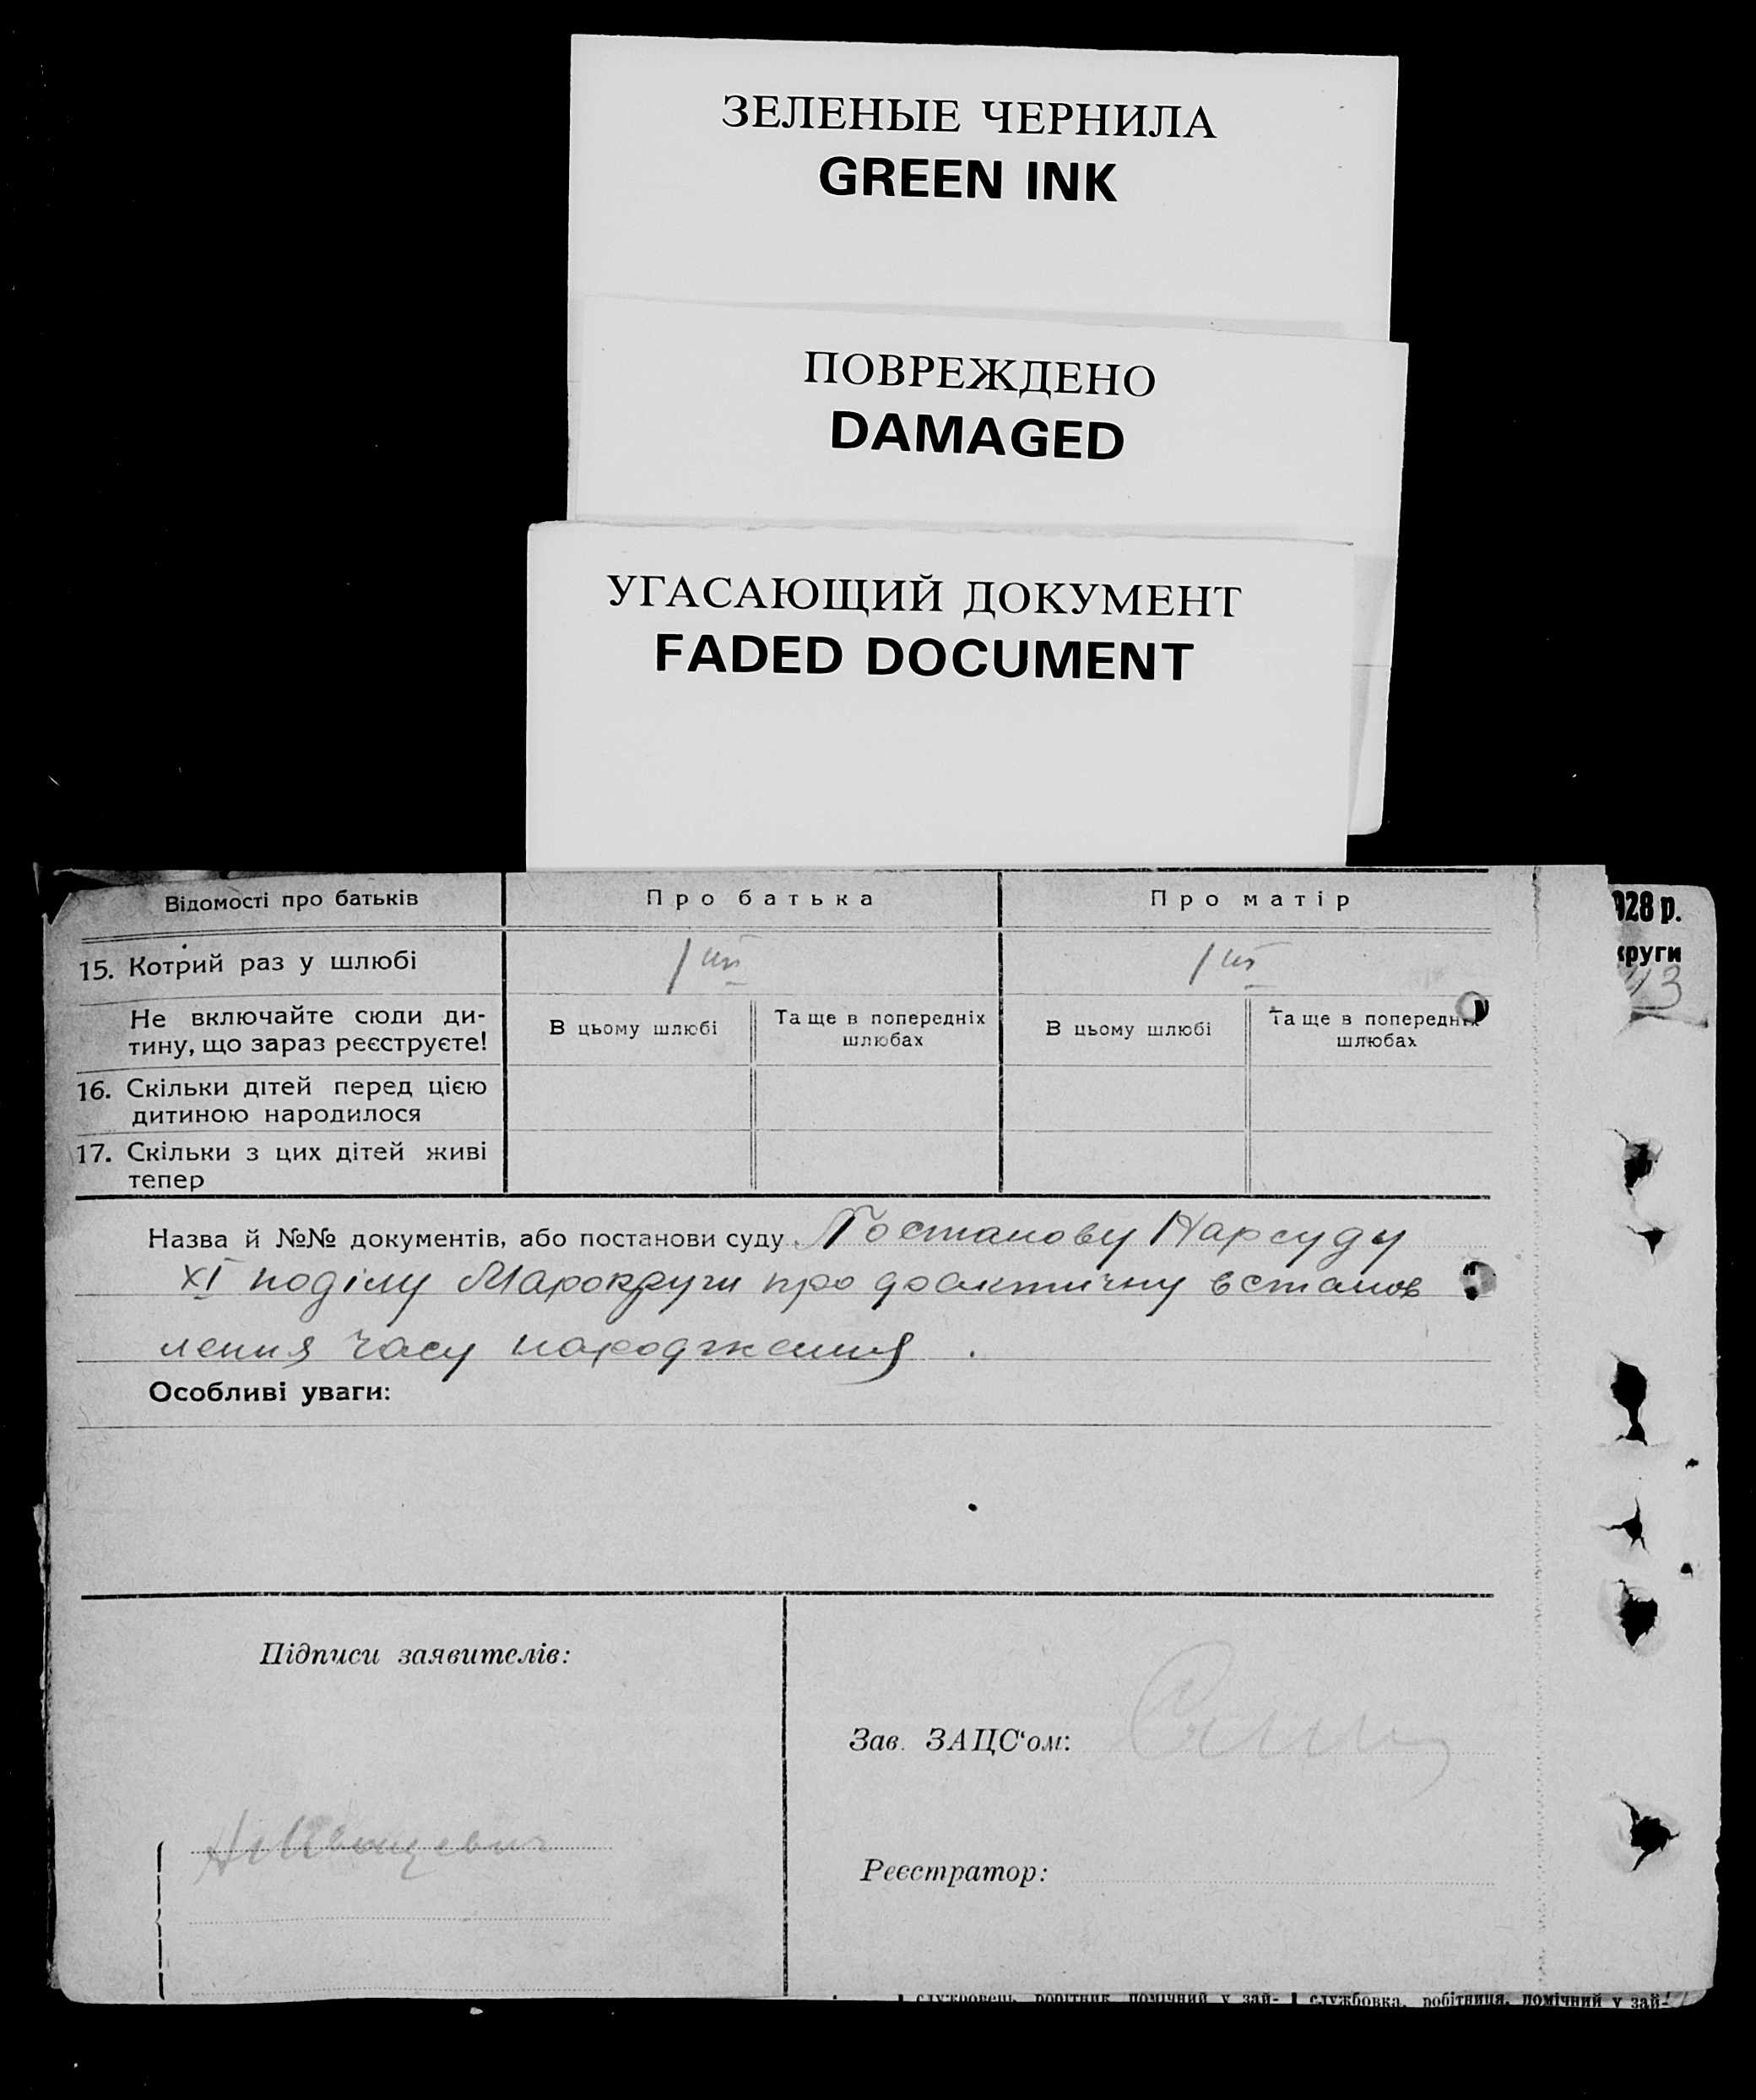 ЗЕЛЕНЫЕ ЧЕРНИЛА
GREEN INK
ПОВРЕЖДЕНО
DAMAGED
УГАСАЮЩИЙ ДОКУМЕНТ
FADED DOCUMENT
Відомості про батьків Про батька Про матір
928 р.
круги
15. Котрий раз у шлюбі 1ий 1ий
Не включайте сюди ди-
тину, що зараз реєструєте!
В цьому шлюбі
Та ще в попередніх
шлюбах
В цьому шлюбі
Та ще в попередніх
шлюбах
16. Скільки дітей перед цією
дитиною народилося
17. Скільки з цих дітей живі
тепер
Назва й №№ документів, або постанови суду Постанову Нарсуду
XI поділу Марокруги про встанов
лення часу народження.
Особливі уваги:
Підписи заявителів:
Зав. ЗАЦС'ом:
Реєстратор:
службовець, робітник, помічний у зай- службовка, робітниця, помічний у зай-